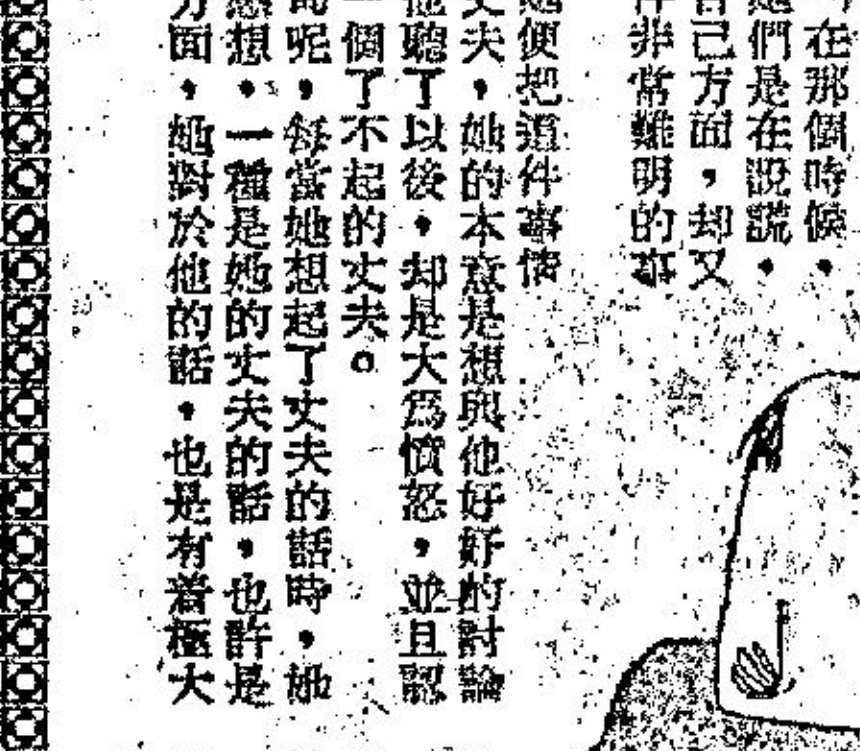 在那個時候，
她們是在說謊，
自己方面，却又
件非常難明的事
便把這件事情
丈夫，她的本意是想與他好好的討論
他聽了以後，却是大爲憤怒，並且認
一個了不起的丈夫。
呢，每當她想起了丈夫的話時，她
想，一種是她的丈夫的話，也許是
方面，她對於他的話，也是有着極大